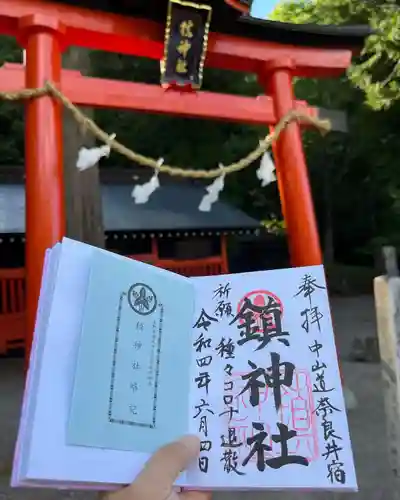 鎮神社
奉拝 中山道 奈良井宿
鎮神社
祈願 種々コロナ退散
令和四年 六月四日
鎮神社略記